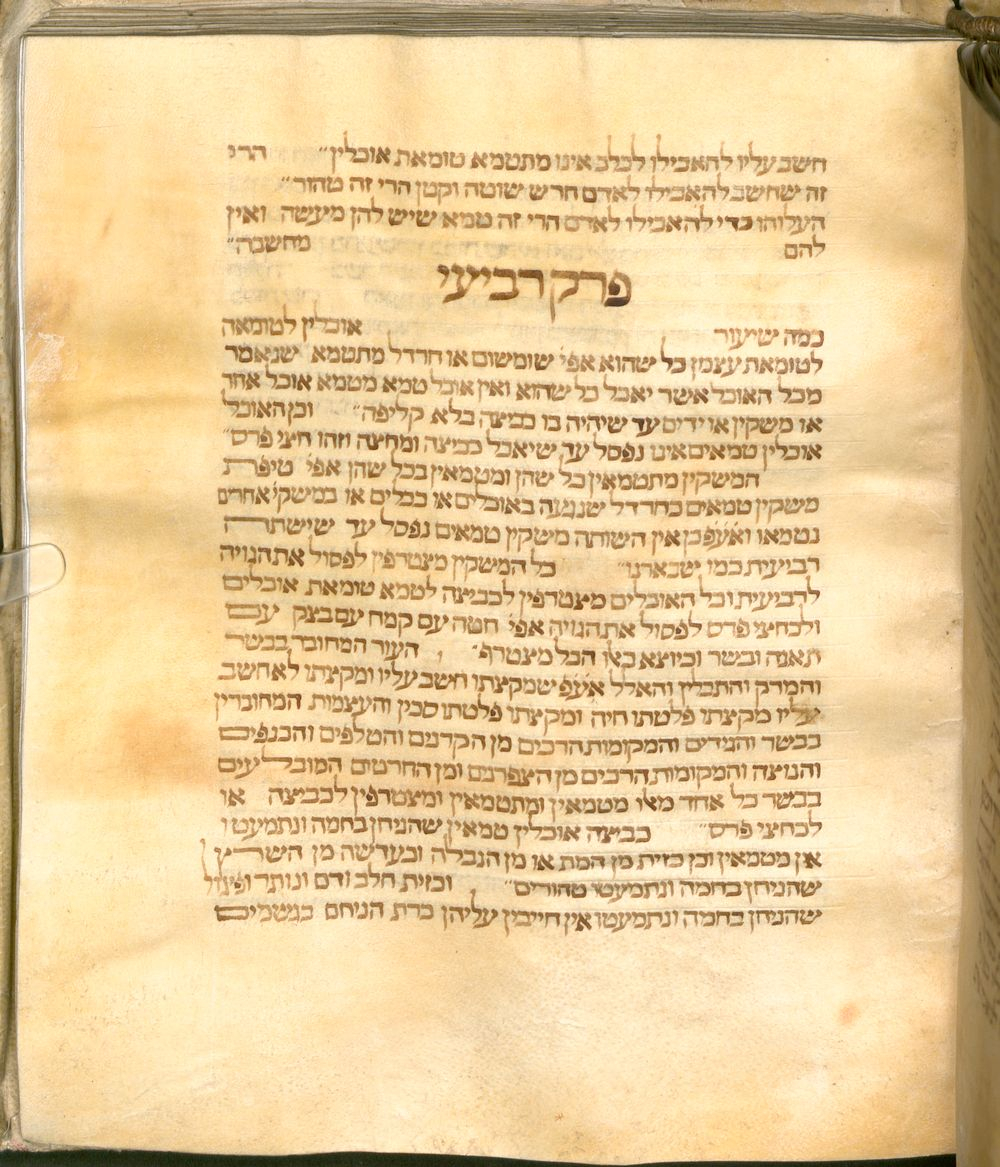 חשב עליו להאכילו לכלב אינו מתטמא טומאת אוכלין״ הרי
זה שחשב להאכילו לאדם חרש שוטה וקטן הרי זה טהור״
העלוהו כדי להאכילו לאדם הרי זה טמא שיש להן מעשה ואין
להם מחשבה״
פרק רביעי
כמה שיעור אוכלין לטומאה
לטומאת עצמן כל שהוא אפי׳ שומשום או חרדל מתטמא שנאמר
מכל האוכל אשר יאכל כל שהוא ואין אוכל טמא מטמא אוכל אחר
או משקין או ידים עד שיהיה בו כביצה בלא קליפה״ וכן האוכל
אוכלין טמאים אינו נפסל עד שיאכל כביצה ומחצה וזהו חצי פרס״
המשקין מתטמאין כל שהן ומטמאין בכל שהן אפי׳ טיפרת
משקין טמאים כחרדל שנגעה באוכלים או בכלים או במשקי׳ אחרים
נטמאו ואעפ כן אין השותה משקין טמאים נפסל עד שישתה
רביעית כמו שבארנו״ כל המשקין מצטרפין לפסול את הגויה
לרביעית וכל האוכלים מצטרפין לכביצה לטמא טומאת אוכלים
ולכחצי פרס לפסול את הגויה אפי׳ חטה עם קמח עם בצק עם
תאנה ובשר וכיוצא באלו הכל מצטרף״ העור המחובר בבשר
והמרק והתבלין והאלל אעפ שמקצתו חשב עליו ומקצתו לא חשב
עליו מקצתו פלטתו חיה ומקצתו פלטתו סכין והעצמות המחוברין
בבשר והגידים והמקומות הרכים מן הקרנים והטלפים והכנפים
והנוצה והמקומות הרכים מן הצפרנים ומן החרטום המובלעים
בבשר כל אחד מאלו מטמאין ומתטמאין ומצטרפין לכביצה או
לכחצי פרס״ כביצה אוכלין טמאין שהניחן בחמה ונתמעטו
אין מטמאין וכן כזית מן המת או מן הנבלה וכעדשה מן השרץ
שהניחן בחמה ונתמעטו טהורים״ וכזית חלב ודם ונותר ופיגול
שהניחן בחמה ונתמעטו אין חייבין עליהן כרת הניחם בגשמים